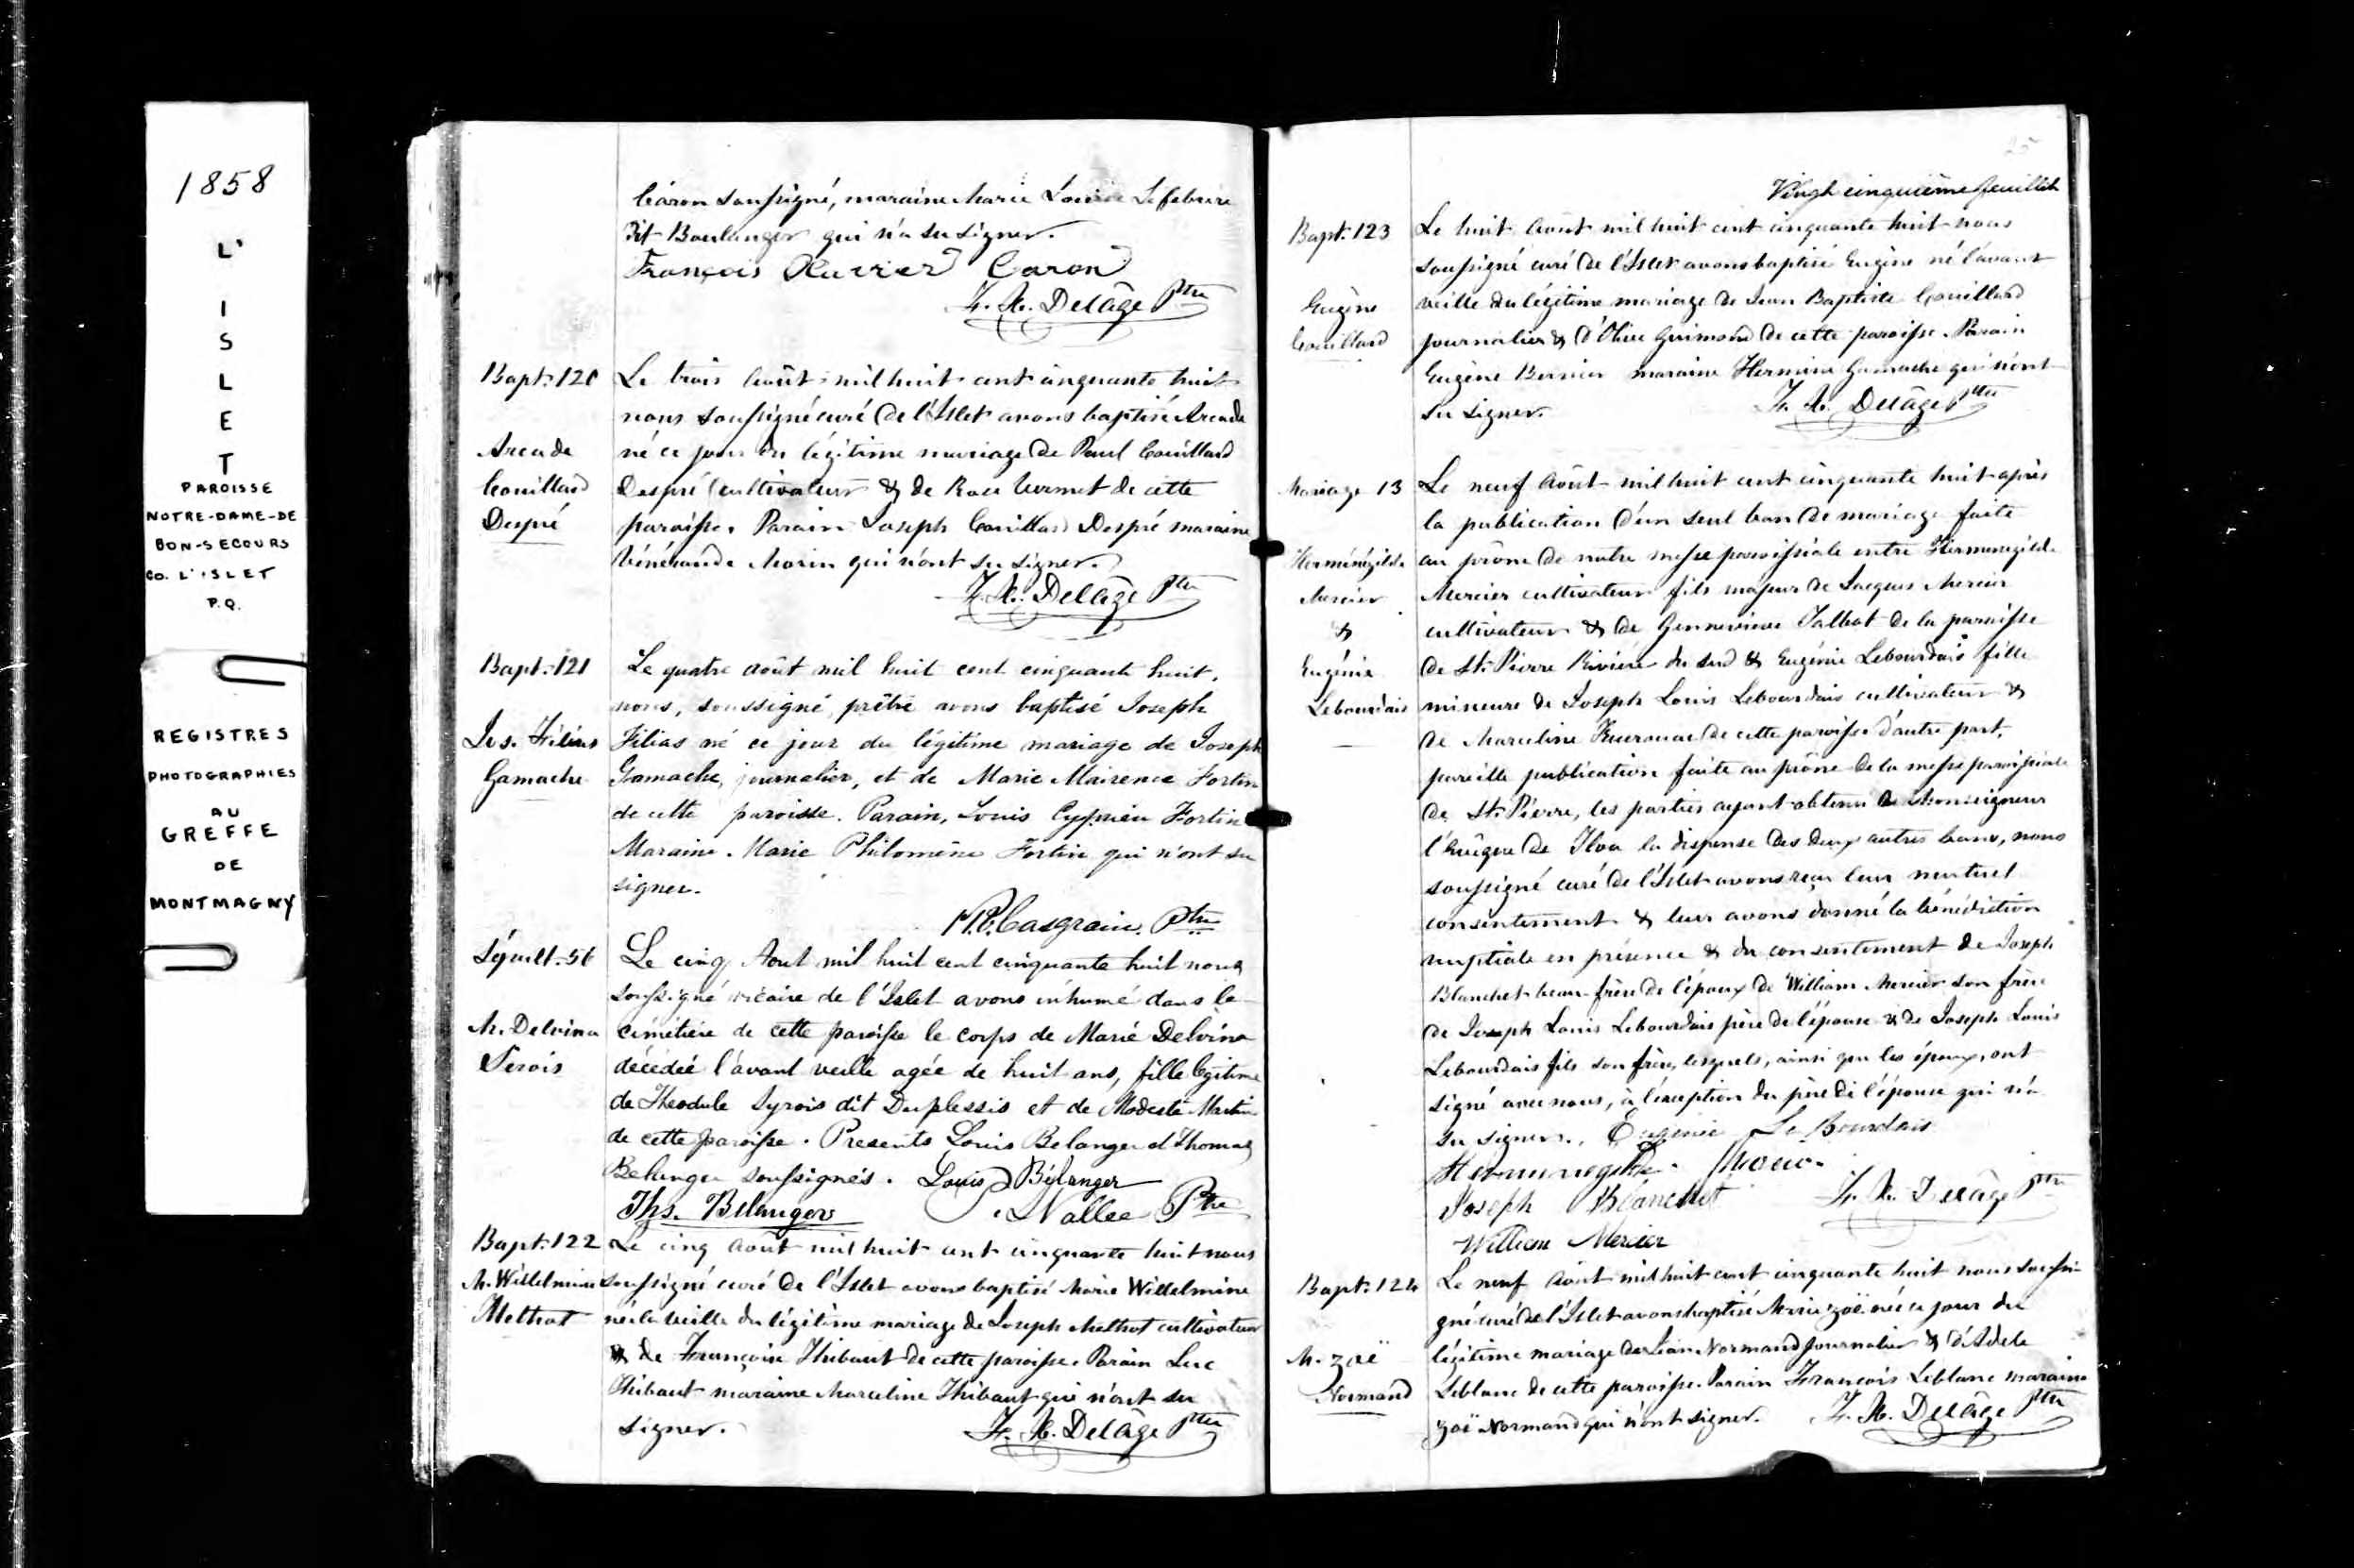 1858
L'
I
S
L
E
T
PAROISSE
NOTRE-DAME-DE
BON-SECOURS
CO. L'ISLET
P.Q.
REGISTRES
PHOTOGRAPHIES
AU
GREFFE
DE
MONTMAGNY
Caron soussigné, maraine Marie Louise Lefebvre
dit Boulanger qui n'a su signer.
François Olivier Caron
F. X. Delâge Ptre
Bapt. 120
Arcade
Couillard
Despré
Le trois Août mil huit cent cinquante huit
nous soussigné curé de l'Islet avons baptisé Arcade
né ce jour du légitime mariage de Paul Couillard
Despré cultivateur & de Rose Vermet de cette
paroisse. Parain Joseph Couillard Despré maraine
Vénérande Morin qui n'ont su signer.
F. X. Delâge Ptre
Bapt. 121
Jos. Filias
Gamache
Le quatre août mil huit cent cinquante huit,
nous, soussigné, prêtre avons baptisé Joseph
Filias né ce jour du légitime mariage de Joseph
Gamache, journalier, et de Marie Fortin
de cette paroisse. Parain, Louis Cyprien Fortin
Maraine. Marie Philomène Fortin qui n'ont su
signer.
Casgrain, Ptre
Sépult. 56
M. Delvina
Serois
Le cinq Aout mil huit cent cinquante huit nous
soussigné vicaire de l'Islet avons inhumé dans le
cimétière de cette paroisse le corps de Marie Delvina
décédée l'avant veille agée de huit ans, fille légitime
de Theodule Syrois dit Duplessis et de Modeste Martin
de cette paroisse. Presents Louis Belanger et Thomas
Belanger soussignés. Louis Bélanger
Ths. Belanger Vallee Ptre
Bapt. 122
M. Willelmine
Methot
Le cinq Août mil huit cent cinquante huit nous
soussigné curé de l'Islet avons baptisé Marie Willelmine
née la veille du légitime mariage de Joseph Methot cultivateur
& de Françoise Thibaut de cette paroisse. Parain Luc
Thibaut maraine Marceline Thibaut qui n'ont su
signer. F. X. Delâge Ptre
25
Vingt cinquième feuillet
Bapt. 123
Eugène
Couillard
Le huit Août mil huit cent cinquante huit nous
soussigné curé de l'Islet avons baptisé Eugène né l'avant
veille du légitime mariage de Jean Baptiste Couillard
journalier & d'Olive Guimond de cette paroisse. Parain
Eugène Bernier maraine Hermine Gamache qui n'ont
su signer. F. X. Delâge Ptre
Mariage 13
Herménégilde
Mercier
&
Eugénie
Lebourdais
Le neuf Août mil huit cent cinquante huit après
la publication d'un seul ban de mariage faite
au prône de notre messe paroissiale entre Herménégilde
Mercier cultivateur fils majeur de Jacques Mercier
cultivateur & de Gennevieve Talbot de la paroisse
de St. Pierre Rivière du sud & Eugénie Lebourdais fille
mineure de Joseph Louis Lebourdais cultivateur &
de Marceline Kuerouac de cette paroisse d'autre part,
pareille publication faite au prône de la messe paroissiale
de St. Pierre, les parties ayant obtenu de Monseigneur
l'Evêque de Tloa la dispense des deux autres bans, nous
soussigné curé de l'Islet avons reçu leur mutuel
consentement & leur avons donné la bénédiction
nuptiale en présence & du consentement de Joseph
Blanchet beau-frère de l'époux de William Mercier son frère
de Joseph Louis Lebourdais père de l'épouse & de Joseph Louis
Lebourdais fils son frère, lesquels, ainsi que les époux, ont
signé avec nous, à l'exception du père de l'épouse qui n'a
su signer. Eugenie Le Bourdais
Hermenegilde Mercier
Joseph Blanchet F. X. Delâge Ptre
William Mercier
Bapt. 124
M. Zoë
Normand
Le neuf Août mil huit cent cinquante huit nous soussi-
gné curé de l'Islet avons baptisé Marie Zoë née ce jour du
légitime mariage de Léon Normand journalier & d'Adele
Leblanc de cette paroisse. Parain François Leblanc maraine
Zoë Normand qui n'ont signer. F. X. Delâge Ptre